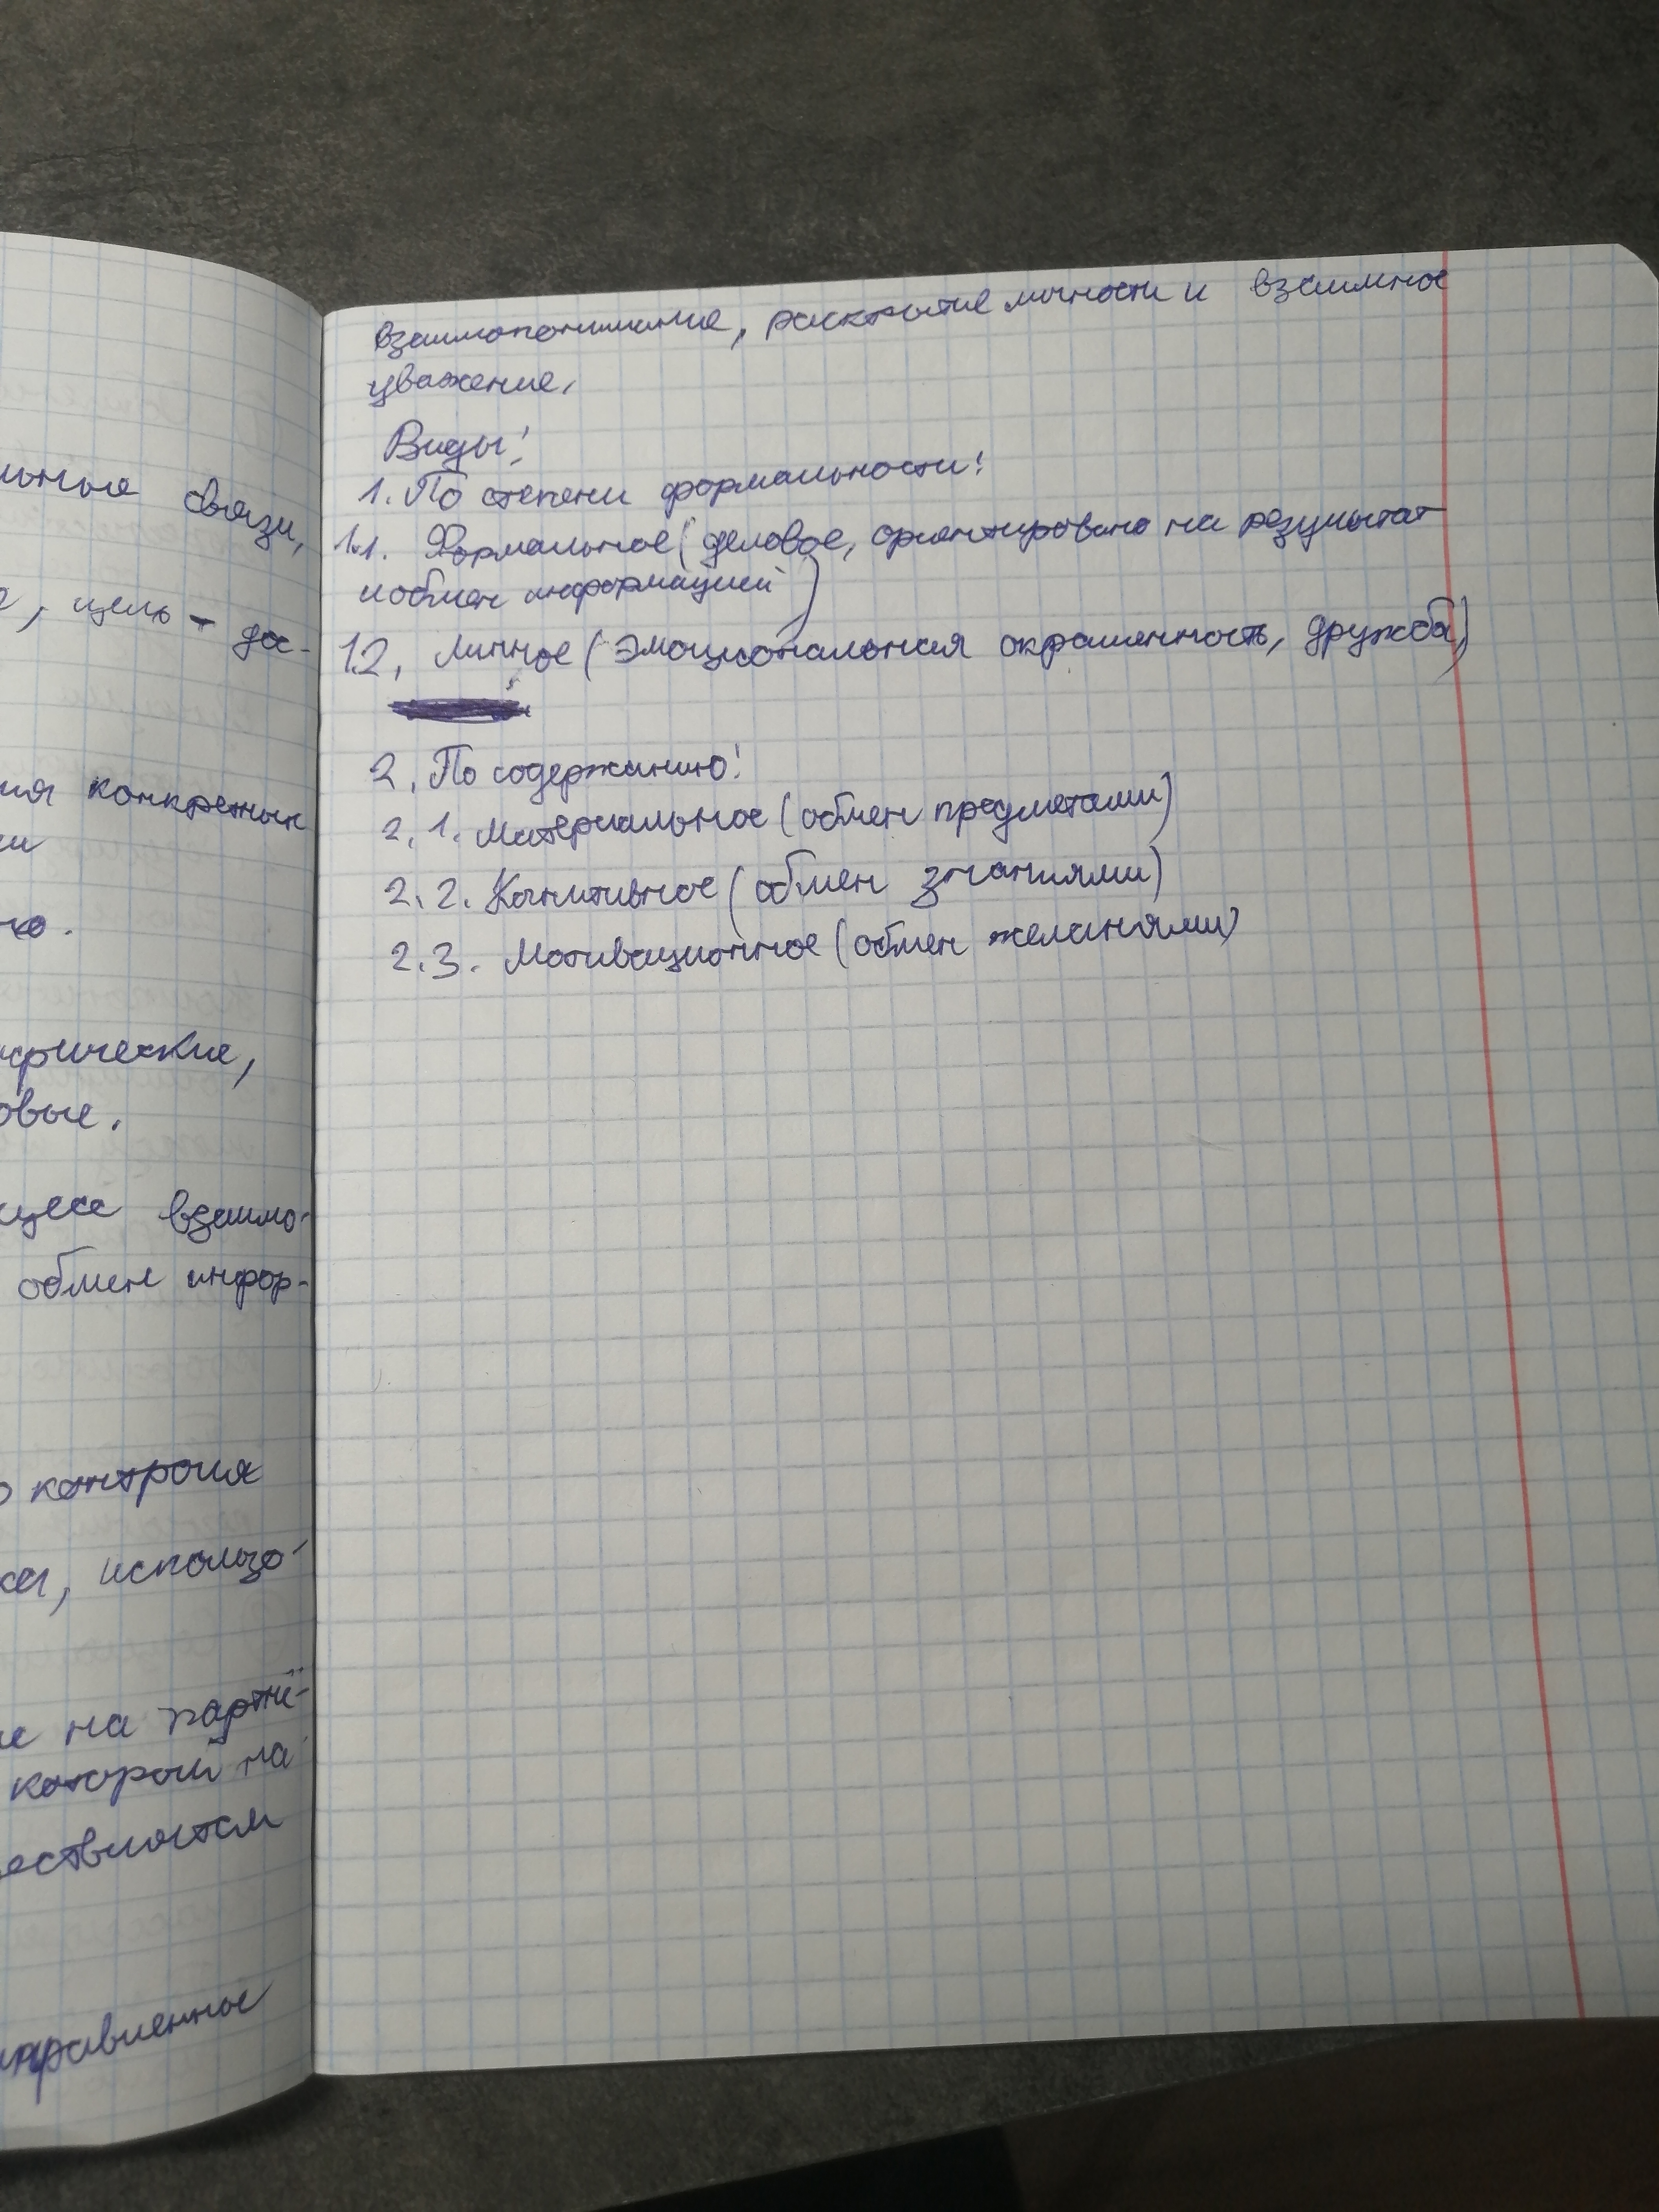 льные связи,
, цель - дос-
ия конкретных
и
но.
фические,
овые.
цесс взаимо-
обмен инфор-
о контроля
ка, использо-
ие на партнё-
которой на
еставляет
направленное
взаимопонимание, раскрытие личности и взаимное
уважение.
Виды:
1. По степени формальности:
1.1. Формальное (деловое, ориентировано на результат
и обмен информацией)
1.2. Личное (эмоциональная окрашенность, дружба)
2. По содержанию:
2.1. Материальное (обмен предметами)
2.2. Когнитивное (обмен знаниями)
2.3. Мотивационное (обмен желаниями)